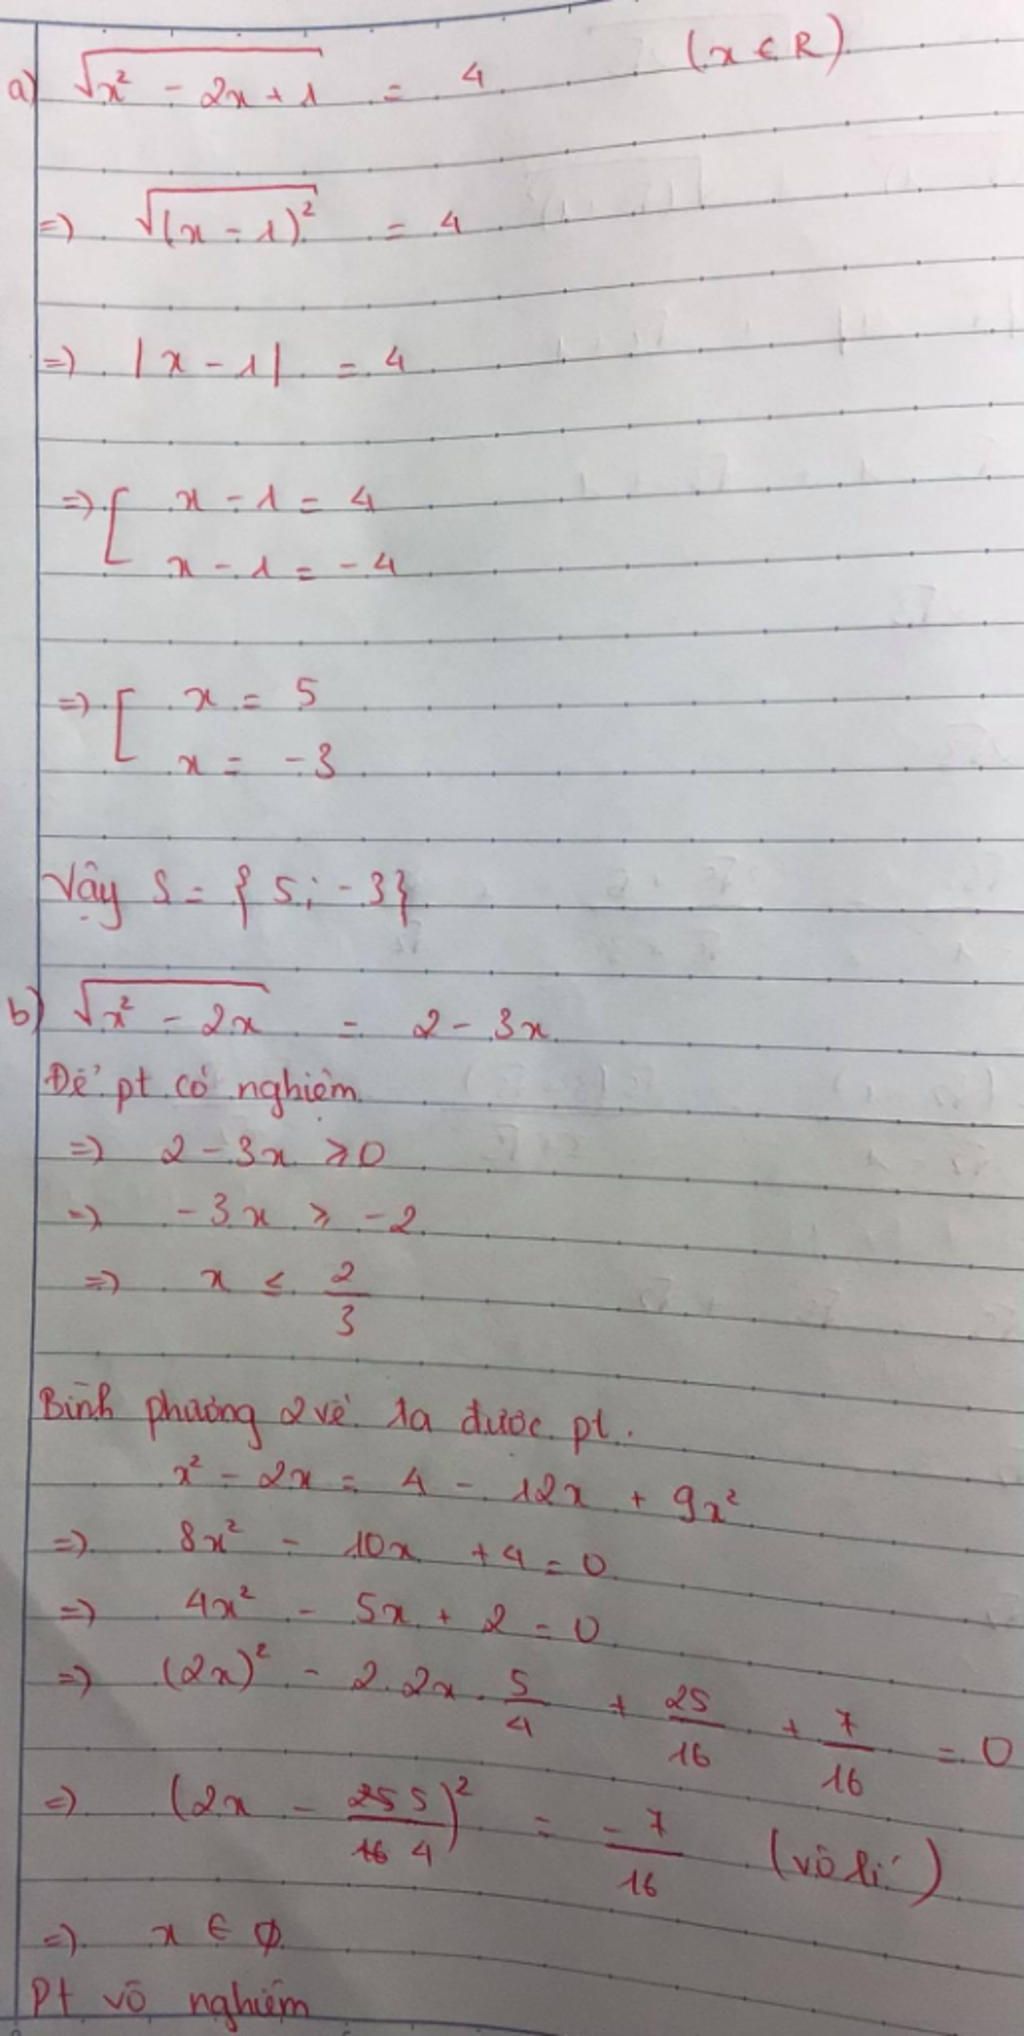 a) √(x² - 2x + 1) = 4 (x ∈ R)
=> √((x - 1)²) = 4
=> |x - 1| = 4
=> [ x - 1 = 4
x - 1 = -4
=> [ x = 5
x = -3
Vậy S = {5; -3}
b) √(x² - 2x) = 2 - 3x
Để pt có nghiệm
=> 2 - 3x ≥ 0
=> -3x ≥ -2
=> x ≤ 2/3
Bình phương 2 vế ta được pt.
x² - 2x = 4 - 12x + 9x²
=> 8x² - 10x + 4 = 0
=> 4x² - 5x + 2 = 0
=> (2x)² - 2.2x.5/4 + 25/16 + 7/16 = 0
=> (2x - 5/4)² = -7/16 (vô lí)
=> x ∈ ∅
Pt vô nghiệm